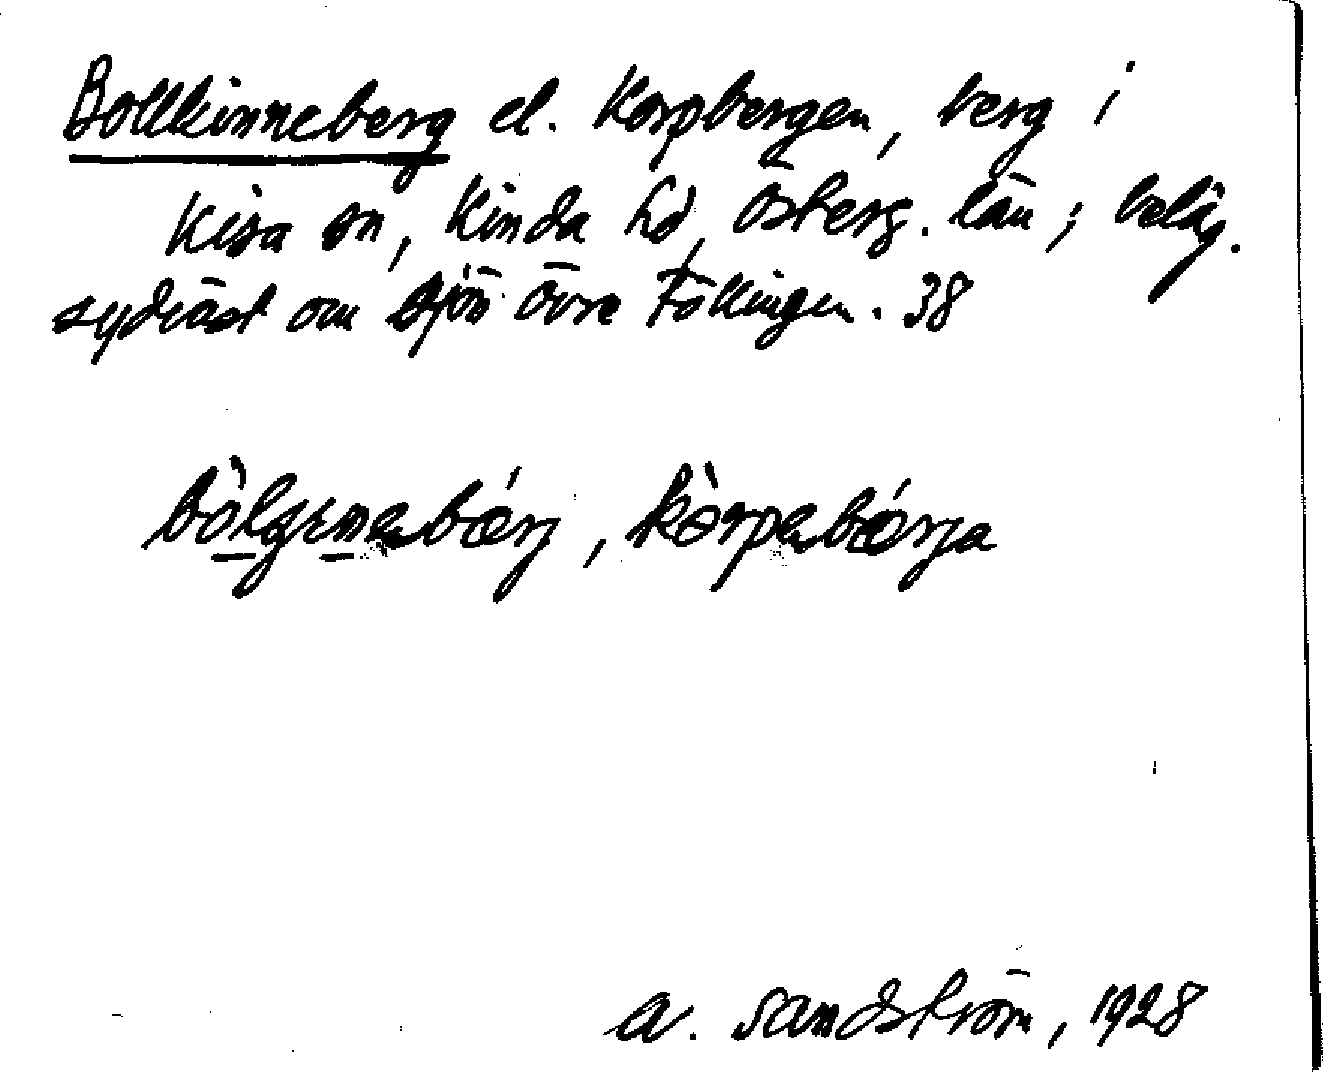 Bollkinneberg el. Korpbergen, berg i
Kisa sn, Kinda hd, Österg. län; beläg.
sydväst om sjön Övre Föllingen. 38
bòlgɛnəbǽrj, kòrpəbǽrja
A. Sandström, 1928